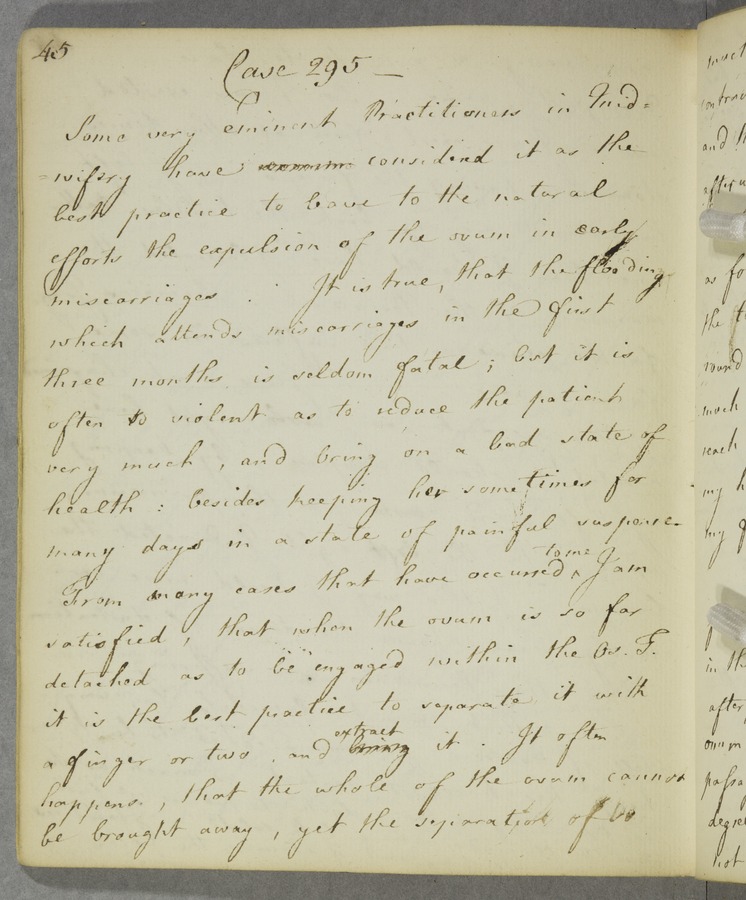 45
Case 295 —
Some very eminent Practitioners in Mid=
=wifery have considerd it as the
best practice to leave to the natural
efforts the expulsion of the ovum in early
miscarriages. It is true, that the flooding
which attends miscarriages in the first
three months is seldom fatal; but it is
often so violent as to reduce the patient
very much, and bring on a bad state of
health: besides keeping her sometimes for
many days in a state of painful suspense.
to me
From many cases that have occurred ^ I am
satisfied, that when the ovum is so far
detached as to be engaged within the Os. T.
it is the best practice to separate it with
extract
a finger or two, and bring it. It often
happens, that the whole of the ovum cannot
be brought away, yet the separation of
much
and
after
as fo
the
round
much
reach
my
my
in th
after
ovum
passa
degree